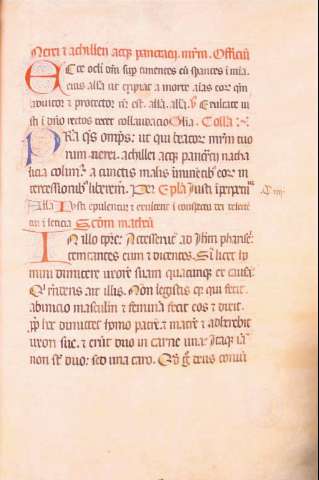 Nerei et achillei atq; pancracij. mrm. Officiū
Ecce oculi dn̄i sup timentes eū sperantes ī mīa
eius alla ut eripiat a morte aīas eor. qm̄
adiutor et protector nr̄ est. alla. alla. V Exultate ius
ti ī dn̄o rectos decet collaudatio Gl̄ia. Collā
Pra qs omps. ut qui beator. mr̄m tuo
rum nerei. achillei atq; pancr̄ij natha
licia colim. a cunctis malis īminētib; eor. in
tercessionib; liberem. Per Ep̄la Iusti ī perpetuū
Alla Iusti epulentur et exultent ī conspectu dei delecte
tur ī leticia Scd̄m matheū
In illo tpr̄e. Accesserūt ad ih̄m pharisei
temtantes eum et dicentes. Si licet ho
mini dimitere uxorē suam quacumq; ex causa.
Qui rn̄dens ait illis. Non legistis qr qui fecit
ab inicio masculū et feminā fecit eos et dixit.
ꝓp hoc dimittet homo patrē. et matrē et adherebit
uxori sue. et erūt duo in carne una. Itaq; iā
non st̄ duo. sed una caro. Qd̄ g̊ deus coniū